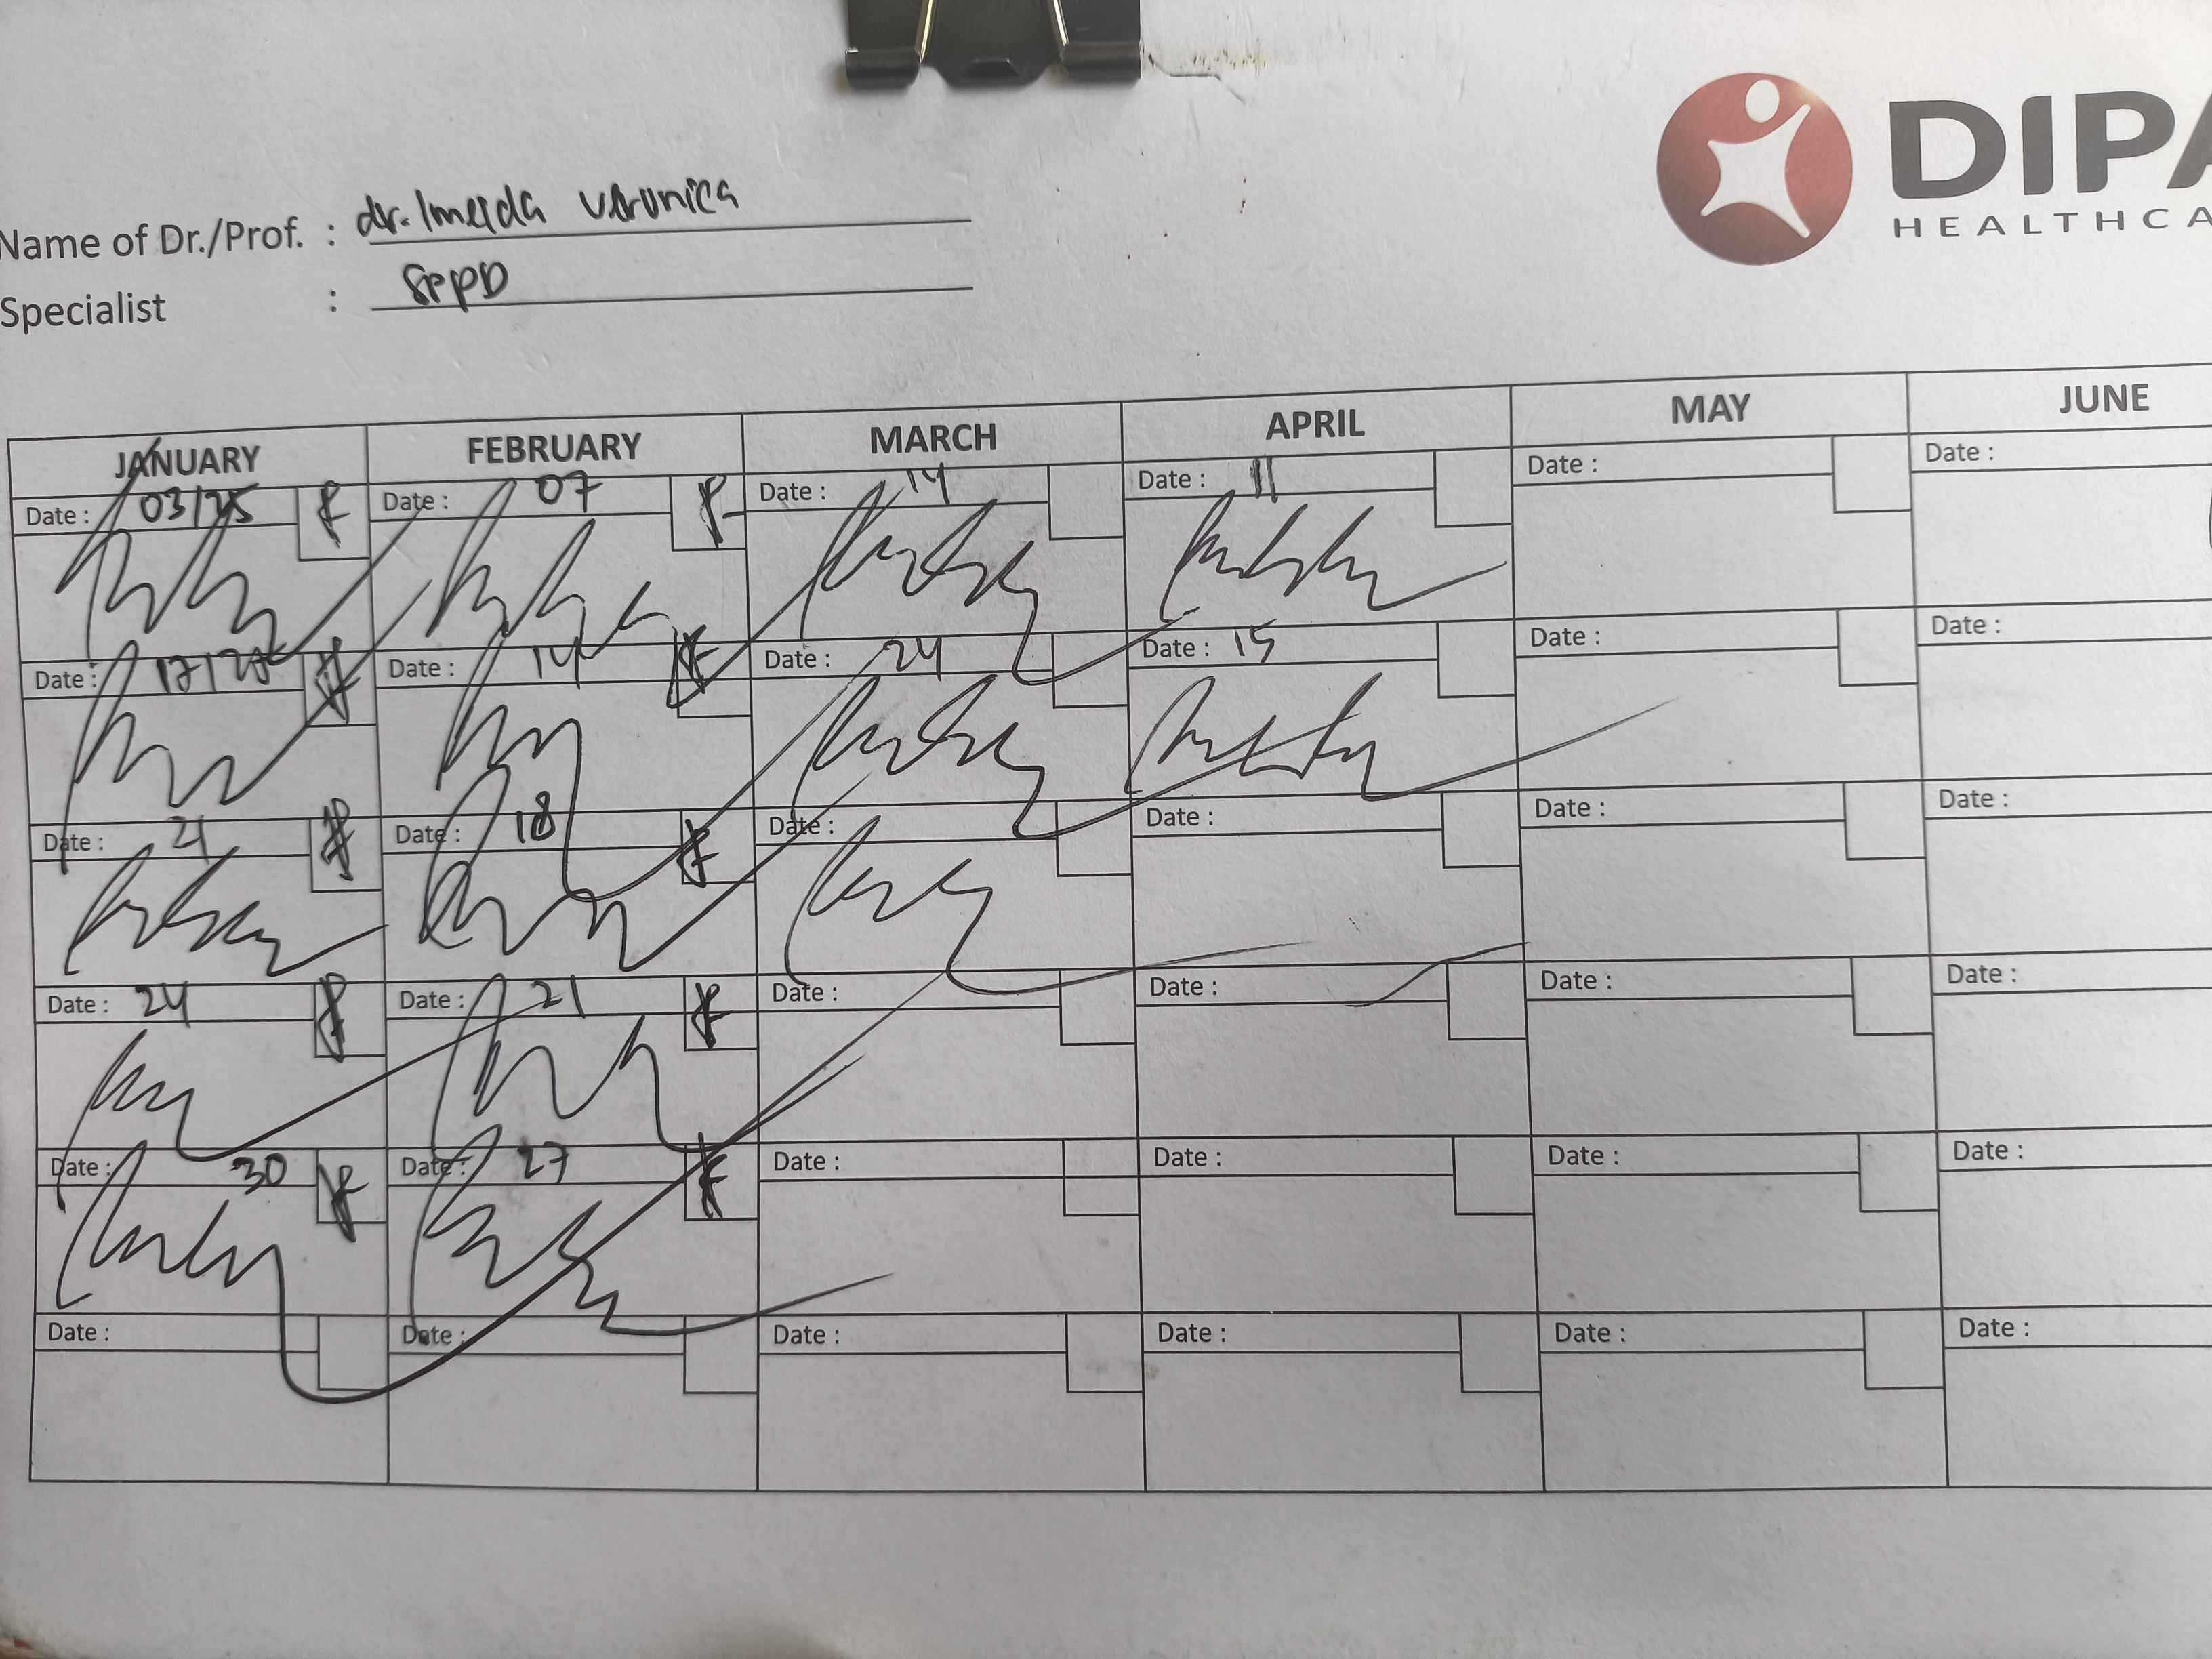 DIPA
HEALTHCA
Name of Dr./Prof. : dr. Imelda Veronica
Specialist : SPPD
JANUARY FEBRUARY MARCH APRIL MAY JUNE
Date : 03/25 Date : 07 Date : 14 Date : 11 Date : Date :
Date : 17/25 Date : 14 Date : 24 Date : 15 Date : Date :
Date : 21 Date : 18 Date : Date : Date : Date :
Date : 24 Date : 21 Date : Date : Date : Date :
Date : 30 Date : 27 Date : Date : Date : Date :
Date : Date : Date : Date : Date : Date :